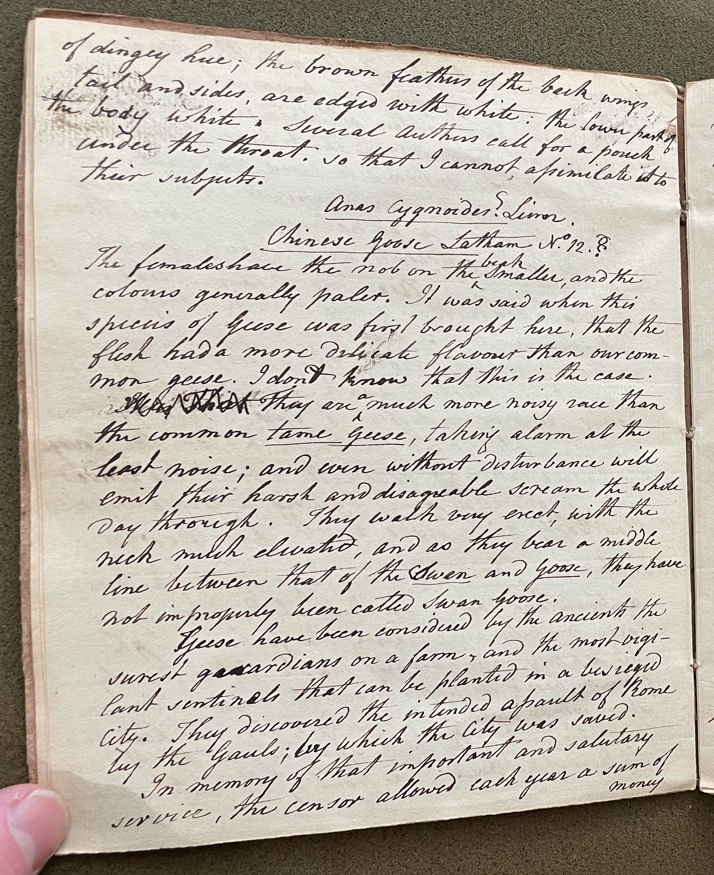 of dingey hue; the brown feathers of the back wings
tail and sides, are edged with white: the lower part of
the body white. Several Authors call for a pouch
under the throat. so that I cannot, assimilate it to
their subjects.
Anas Cygnoides?
Chinese Goose Latham No. 12.?
The females have the nob on the beak smaller, and the
colours generally paler. It was said when this
species of Geese was first brought here, that the
flesh had a more delicate flavour than our com-
mon geese. I dont know that this is the case.
They are a much more noisy race than
the common tame Geese, taking alarm at the
least noise; and even without disturbance will
emit their harsh and disagreable scream the whole
Day through. They walk very erect, with the
neck much elevated, and as they bear a middle
line between that of the Swan and Goose, they have
not improperly been called Swan Goose.
Geese have been considered by the ancients the
surest guardians on a farm, and the most vigi-
lant sentinels that can be planted in a besieged
City. They discovered the intended assault of Rome
by the Gauls; by which the City was saved.
In memory of that important and salutary
service, the censor allowed each year a sum of
money